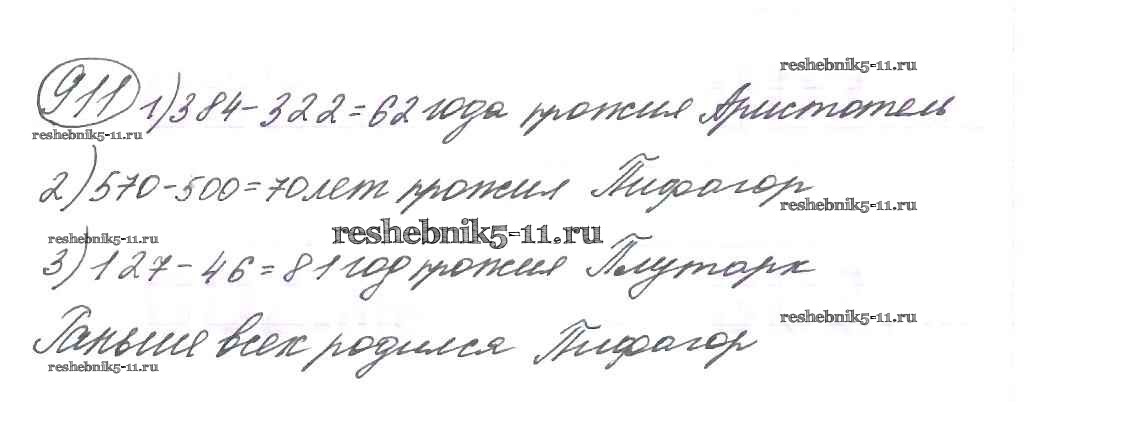 reshebnik5-11.ru
911 1) 384 - 322 = 62 года прожил Аристотель
reshebnik5-11.ru
2) 570 - 500 = 70 лет прожил Пифагор
reshebnik5-11.ru
reshebnik5-11.ru
reshebnik5-11.ru
3) 127 - 46 = 81 год прожил Плутарх
reshebnik5-11.ru
Раньше всех родился Пифагор
reshebnik5-11.ru